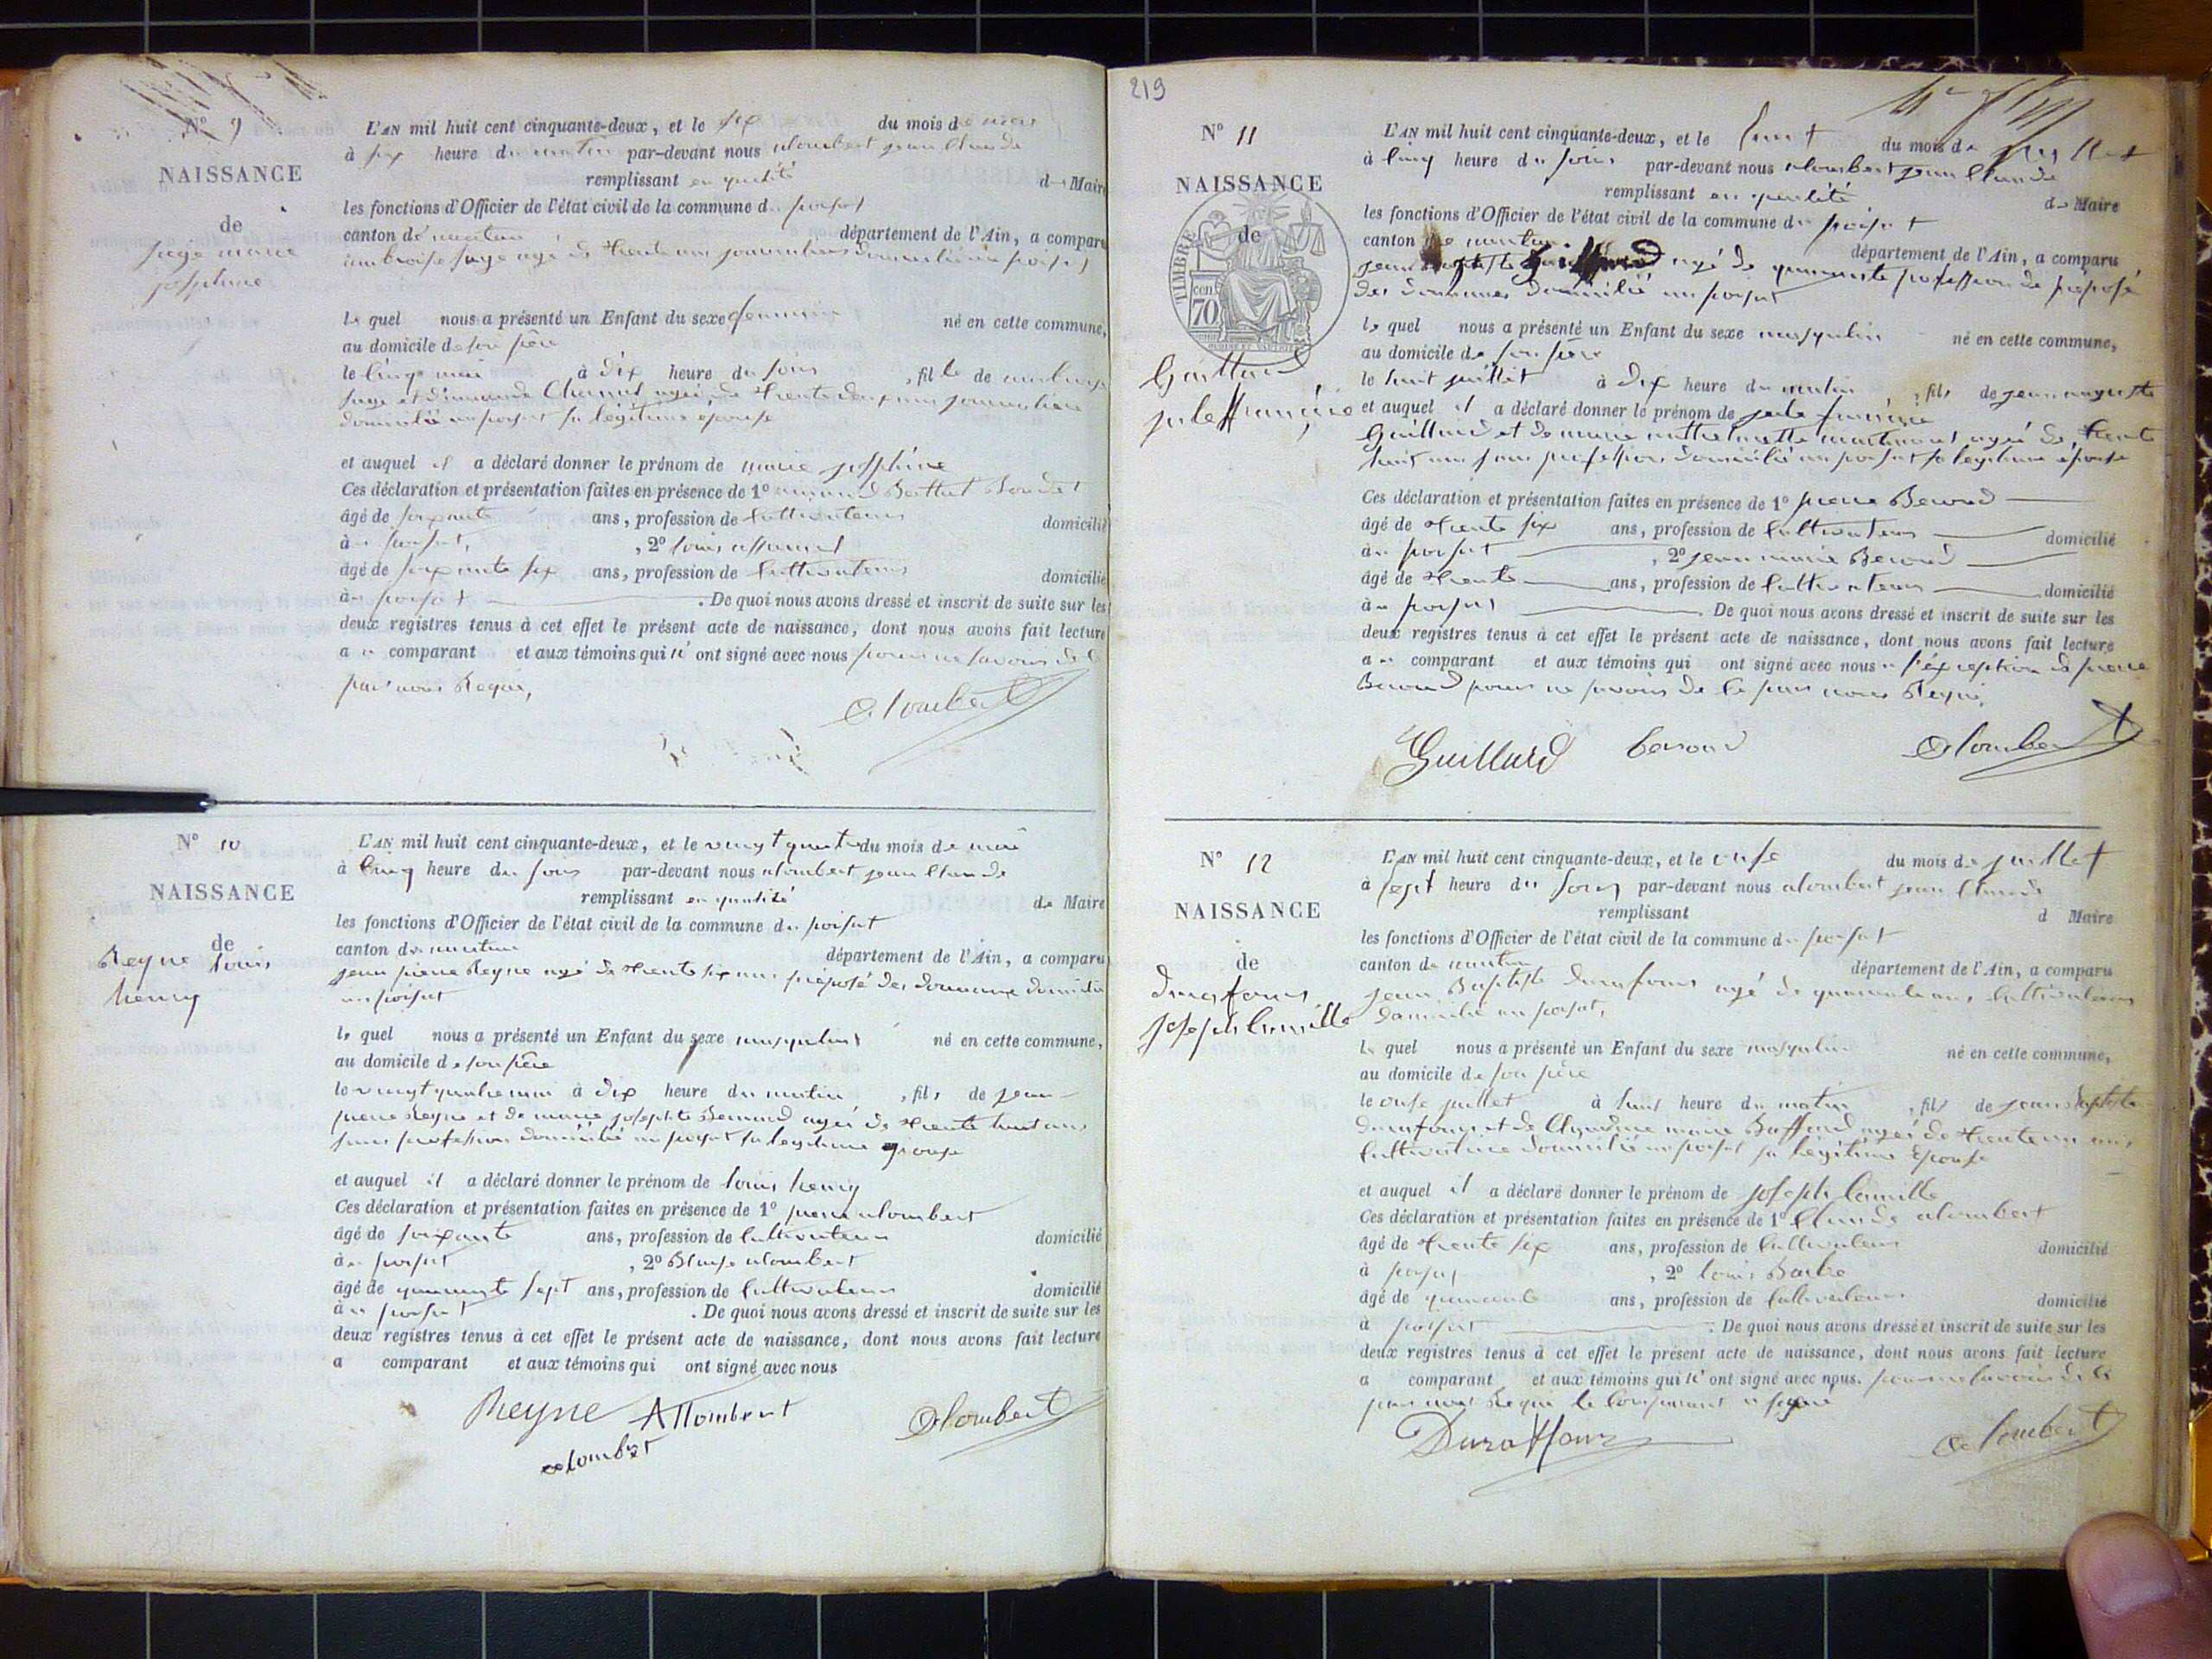 N° 9
NAISSANCE
de
Juge marie
josephine
L'AN mil huit cent cinquante-deux, et le six du mois de mai
à six heure du matin par-devant nous alombert jean Claude
remplissant en qualité de Maire
les fonctions d'Officier de l'état civil de la commune du poisat
canton de nantua département de l'Ain, a comparu
ambroise Juge agé de trente ans journalier domicilié au poisat
le quel nous a présenté un Enfant du sexe féminin né en cette commune,
au domicile de son père
le cinq mai à dix heure du soir , fille de ambroise
Juge et de agée de trente deux ans journaliere
domicilié au poisat sa légitime épouse
et auquel il a déclaré donner le prénom de marie josephine
Ces déclaration et présentation faites en présence de 1°
âgé de soixante ans, profession de cultivateur domicilié
à au poisat, , 2° louis
âgé de soixante six ans, profession de cultivateur domicilié
à au poisat . De quoi nous avons dressé et inscrit de suite sur les
deux registres tenus à cet effet le présent acte de naissance, dont nous avons fait lecture
a u comparant et aux témoins qui n' ont signé avec nous pour ne savoir de ce
par nous Requi,
Alombert
N° 10
NAISSANCE
de
Reyne louis
henry
L'AN mil huit cent cinquante-deux, et le vingt quatre du mois de mai
à cinq heure du soir par-devant nous alombert jean Claude
remplissant en qualité de Maire
les fonctions d'Officier de l'état civil de la commune du poisat
canton de nantua département de l'Ain, a comparu
jean pierre Reyne agé de trente six ans préposé des douanne domicilié
au poisat
le quel nous a présenté un Enfant du sexe masqulin né en cette commune,
au domicile de son père
le vingt quatre mai à dix heure du matin , fils de jean
pierre Reyne et de marie josephte Bernard agée de trente huit ans
sans profession domicilié au poisat sa légitime épouse
et auquel il a déclaré donner le prénom de louis henry
Ces déclaration et présentation faites en présence de 1° pierre alombert
âgé de soixante ans, profession de cultivateur domicilié
à au poisat , 2° Blaise alombert
âgé de quarante sept ans, profession de cultivateur domicilié
à au poisat . De quoi nous avons dressé et inscrit de suite sur les
deux registres tenus à cet effet le présent acte de naissance, dont nous avons fait lecture
a comparant et aux témoins qui ont signé avec nous
Reyne Allombert Alombert
alombert
219
N° 11
NAISSANCE
de
TIMBRE
70 cen.
Guillard
jule françois
L'AN mil huit cent cinquante-deux, et le huit du mois de juillet
à cinq heure du soir par-devant nous alombert jean Claude
remplissant en qualité de Maire
les fonctions d'Officier de l'état civil de la commune du poisat
canton de nantua département de l'Ain, a comparu
jean Guillard agé de quarante profession de préposé
des douannes domicilié au poisat
le quel nous a présenté un Enfant du sexe masqulin né en cette commune,
au domicile de son père
le huit juillet à dix heure du matin , fils de jean auguste
et auquel il a déclaré donner le prénom de jule françois
Guillard et de marie agée de trente
huit ans sans profession domicilié au poisat sa legitime épouse
Ces déclaration et présentation faites en présence de 1° pierre Beroud
âgé de trente six ans, profession de cultivateur domicilié
à au poisat , 2° jean marie Beroud
âgé de trente ans, profession de cultivateur domicilié
à au poisat . De quoi nous avons dressé et inscrit de suite sur les
deux registres tenus à cet effet le présent acte de naissance, dont nous avons fait lecture
a u comparant et aux témoins qui ont signé avec nous a l'éxception de pierre
Beroud pour ne savoir de ce par nous Requi,
Guillard beroud Alombert
N° 12
NAISSANCE
de
durafour
joseph Camille
L'AN mil huit cent cinquante-deux, et le onse du mois de juillet
à sept heure du soir par-devant nous alombert jean Claude
remplissant d Maire
les fonctions d'Officier de l'état civil de la commune du poisat
canton de nantua département de l'Ain, a comparu
jean Baptiste durafour agé de quarante ans, cultivateur
domicilié au poisat,
le quel nous a présenté un Enfant du sexe masqulin né en cette commune,
au domicile de son père
le onse juillet à huit heure du matin , fils de jean baptiste
durafour et de Claudine marie Buffard agée de trente un ans,
cultivatrice domicilié au poisat sa légitime épouse
et auquel il a déclaré donner le prénom de joseph Camille
Ces déclaration et présentation faites en présence de 1° Claude alombert
âgé de trente six ans, profession de cultivateur domicilié
à poisat , 2° louis Barbe
âgé de quarante ans, profession de cultivateur domicilié
à poisat . De quoi nous avons dressé et inscrit de suite sur les
deux registres tenus à cet effet le présent acte de naissance, dont nous avons fait lecture
a comparant et aux témoins qui n' ont signé avec nous. pour ne savoir de ce
par nous Requi le Comparant a signé
Duraffour Alombert